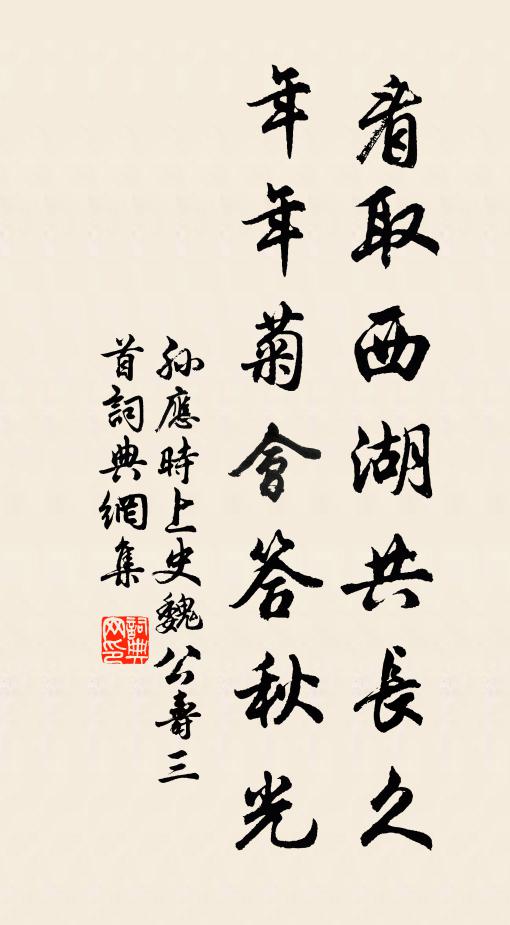 看取西湖共長久
年年菊會答秋光
孫應時上史魏公壽三
首詞典網集
詞典網印